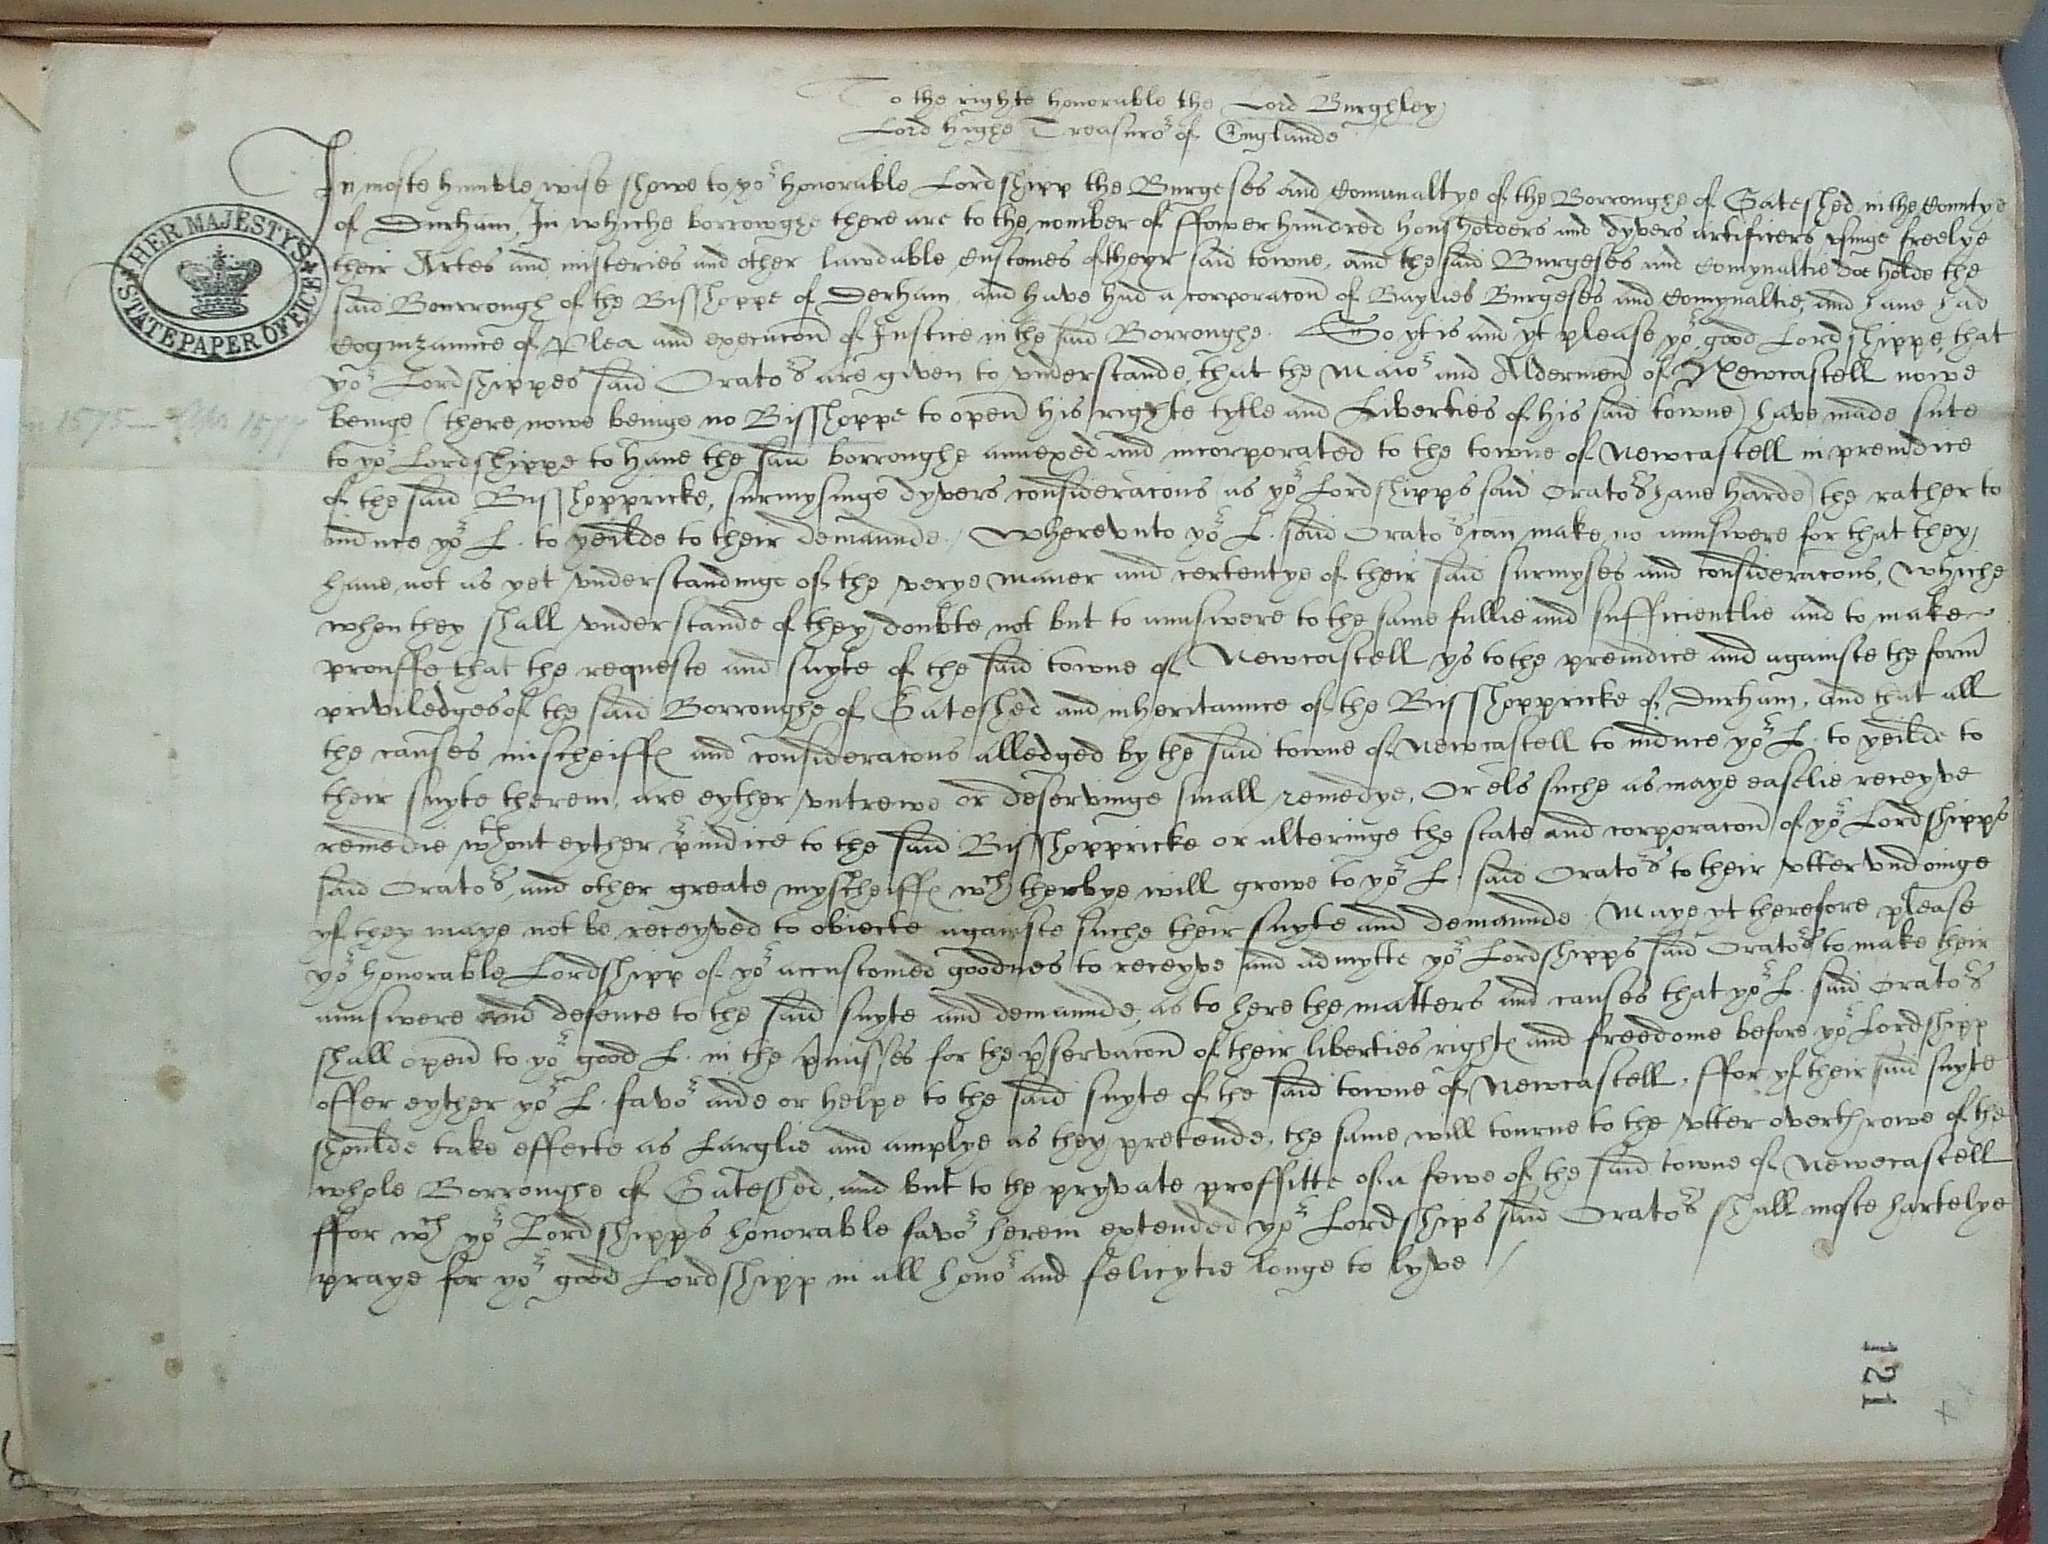 To the righte honorable the Lord Burghley
Lord highe Treasuror of Englande
In moste humble wise showe to yor honorable Lordshipp the Burgeses and Comunaltye of the Borroughe of Gateshed in the Countye
of Durham, In whiche borrowghe there are to the nomber of ffower hundred housholders and dyvers artificers usinge freelye
their Artes and misteries and other lawdable Customes of theyr said towne, and the said Burgeses and Comynaltie doe holde the
said Bourrough of the Bisshoppe of Derham, and have had a corporacon of Baylies Burgeses and Comynaltie, and have had
Cognizaunce of Plea and execucon of Justice in the said Borroughe. So yt is and yt please yor good Lordshippe, that
yor Lordshippes said Orators are given to understande, that the Maior and Aldermen of Newcastell nowe
beinge (there nowe beinge no Bisshoppe to open his righte tytle and Liberties of his said towne) have made sute
to yor Lordshippe to have the said borroughe annexed and incorporated to the towne of Newcastell in preiudice
of the said Bisshoppricke, surmysinge dyvers consideracons (as yor Lordshipps said Orators have harde) the rather to
induce yor L. to yeilde to their demaunde. / Wherevnto yor L. said Orators can make no aunswere for that they
have not as yet vnderstandinge of the verye maner and certentye of their said surmyses and consideracons, Whiche
when they shall vnderstande of they doubte not but to aunswere to the same fullie and sufficientlie and to make
prouffe that the requeste and suyte of the said towne of Newcastell ys to the preiudice and againste the form
priviledges of the said Borroughe of Gateshed and inheritaunce of the Bisshoppricke of Durham, and that all
the causes mischeiffs and consideracons alledged by the said towne of Newcastell to induce yor L. to yeilde to
their suyte therein, are eyther vntrewe or deservinge small remedye, Or els suche as maye easelie receyve
remedie wthout eyther priudice to the said Bisshoppricke or alteringe the state and corporacon of yor Lordshipps
said Orators, and other greate myscheiffs wch therbye will growe to yor L. said Orators to their vtter vndoinge
yf they maye not be receyved to obiecte againste suche their suyte and demaunde / Maye yt therefore please
yor honorable Lordshipp of yor accustomed goodnes to receyve and admytte yor Lordshipps said Orators to make their
aunswere and defence to the said suyte and demaunde, as to here the matters and causes that yor L. said Orators
shall open to yor good L. in the pmisses for the pservacon of their liberties rights and freedome before yor Lordshipp
offer eyther yor L. favor aide or helpe to the said suyte of the said towne of Newcastell. ffor yf their said suyte
shoulde take effecte as Larglie and amplye as they pretende, the same will tourne to the vtter overthrowe of the
whole Borroughe of Gateshed, and but to the pryvate proffitte of a fewe of the said towne of Newcastell
ffor wch yor Lordshipps honorable favor herein extended yor Lordships said Orators shall moste hartelye
praye for yor good Lordshipp in all honor and felicytie longe to lyve /
HER MAJESTYS
STATE PAPER OFFICE
1575 — Apr 1577
121